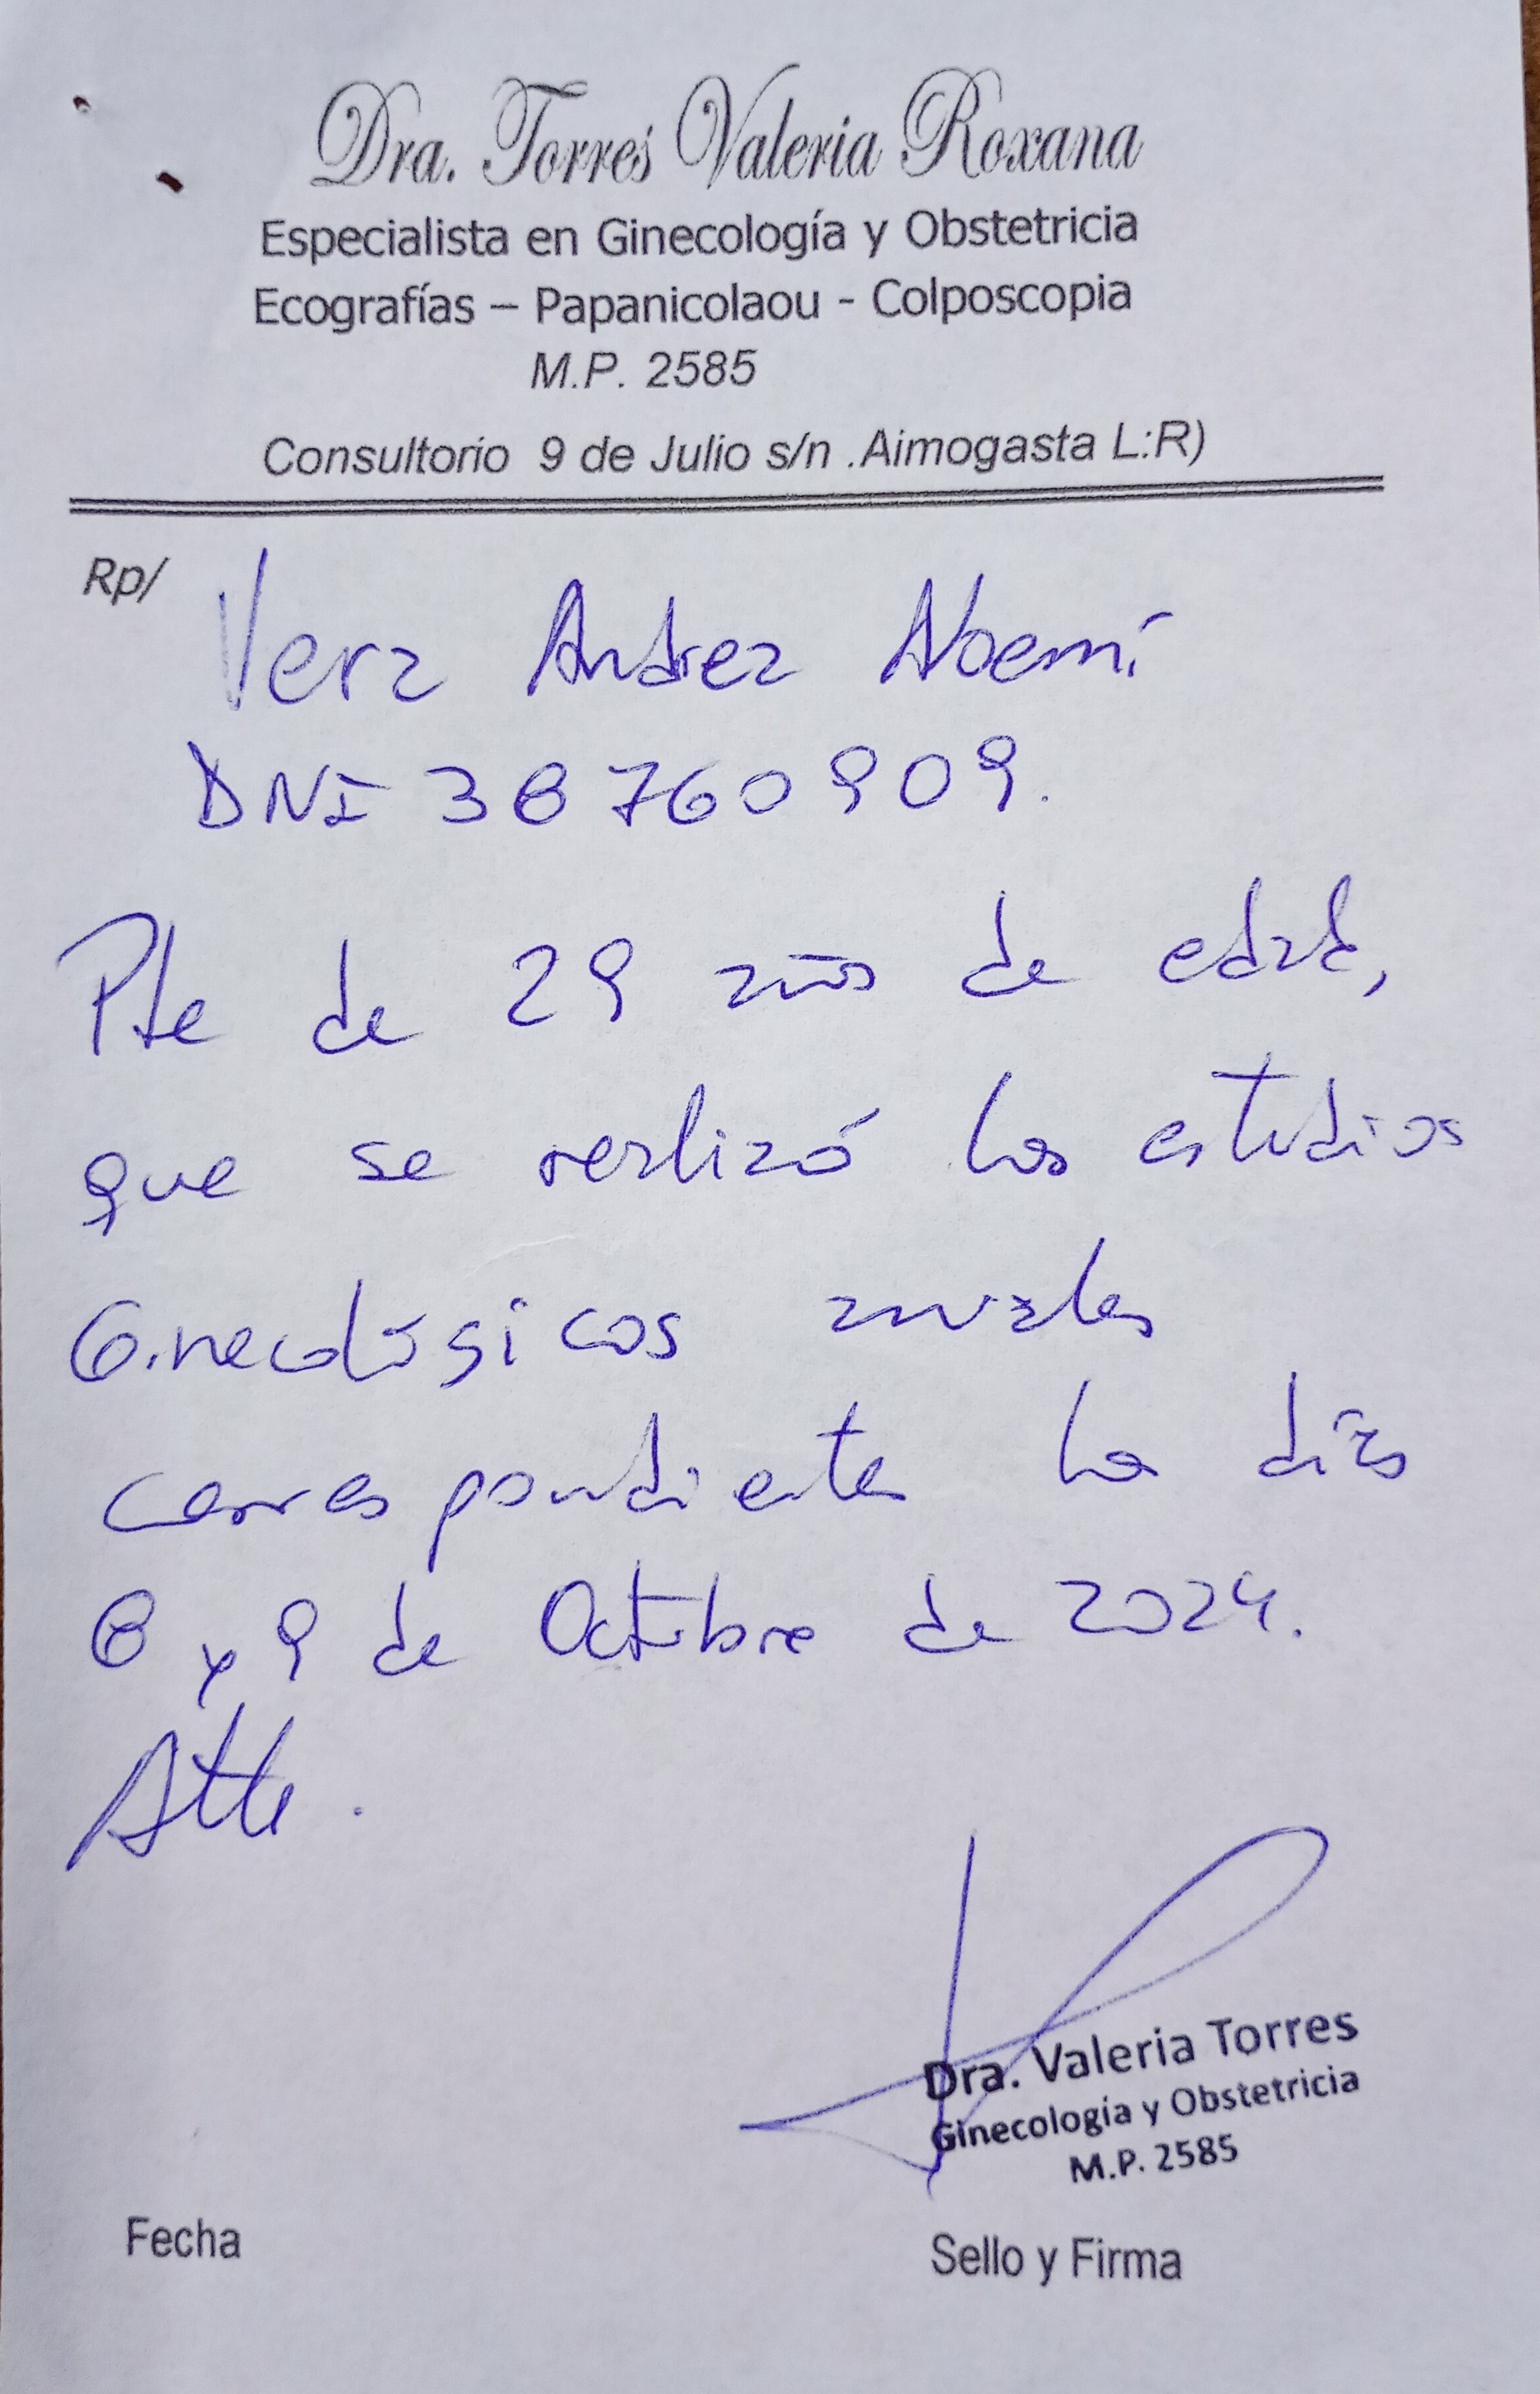 Dra. Torres Valeria Roxana
Especialista en Ginecología y Obstetricia
Ecografías – Papanicolaou - Colposcopia
M.P. 2585
Consultorio 9 de Julio s/n .Aimogasta L:R)
Rp/ Vera Andrea Noemí
DNI 38760909.
Pte de 29 años de edad,
que se realizó los estudios
Ginecológicos anuales
correspondientes los días
8 y 9 de Octubre de 2024.
Atte.
Dra. Valeria Torres
Ginecología y Obstetricia
M.P. 2585
Fecha
Sello y Firma